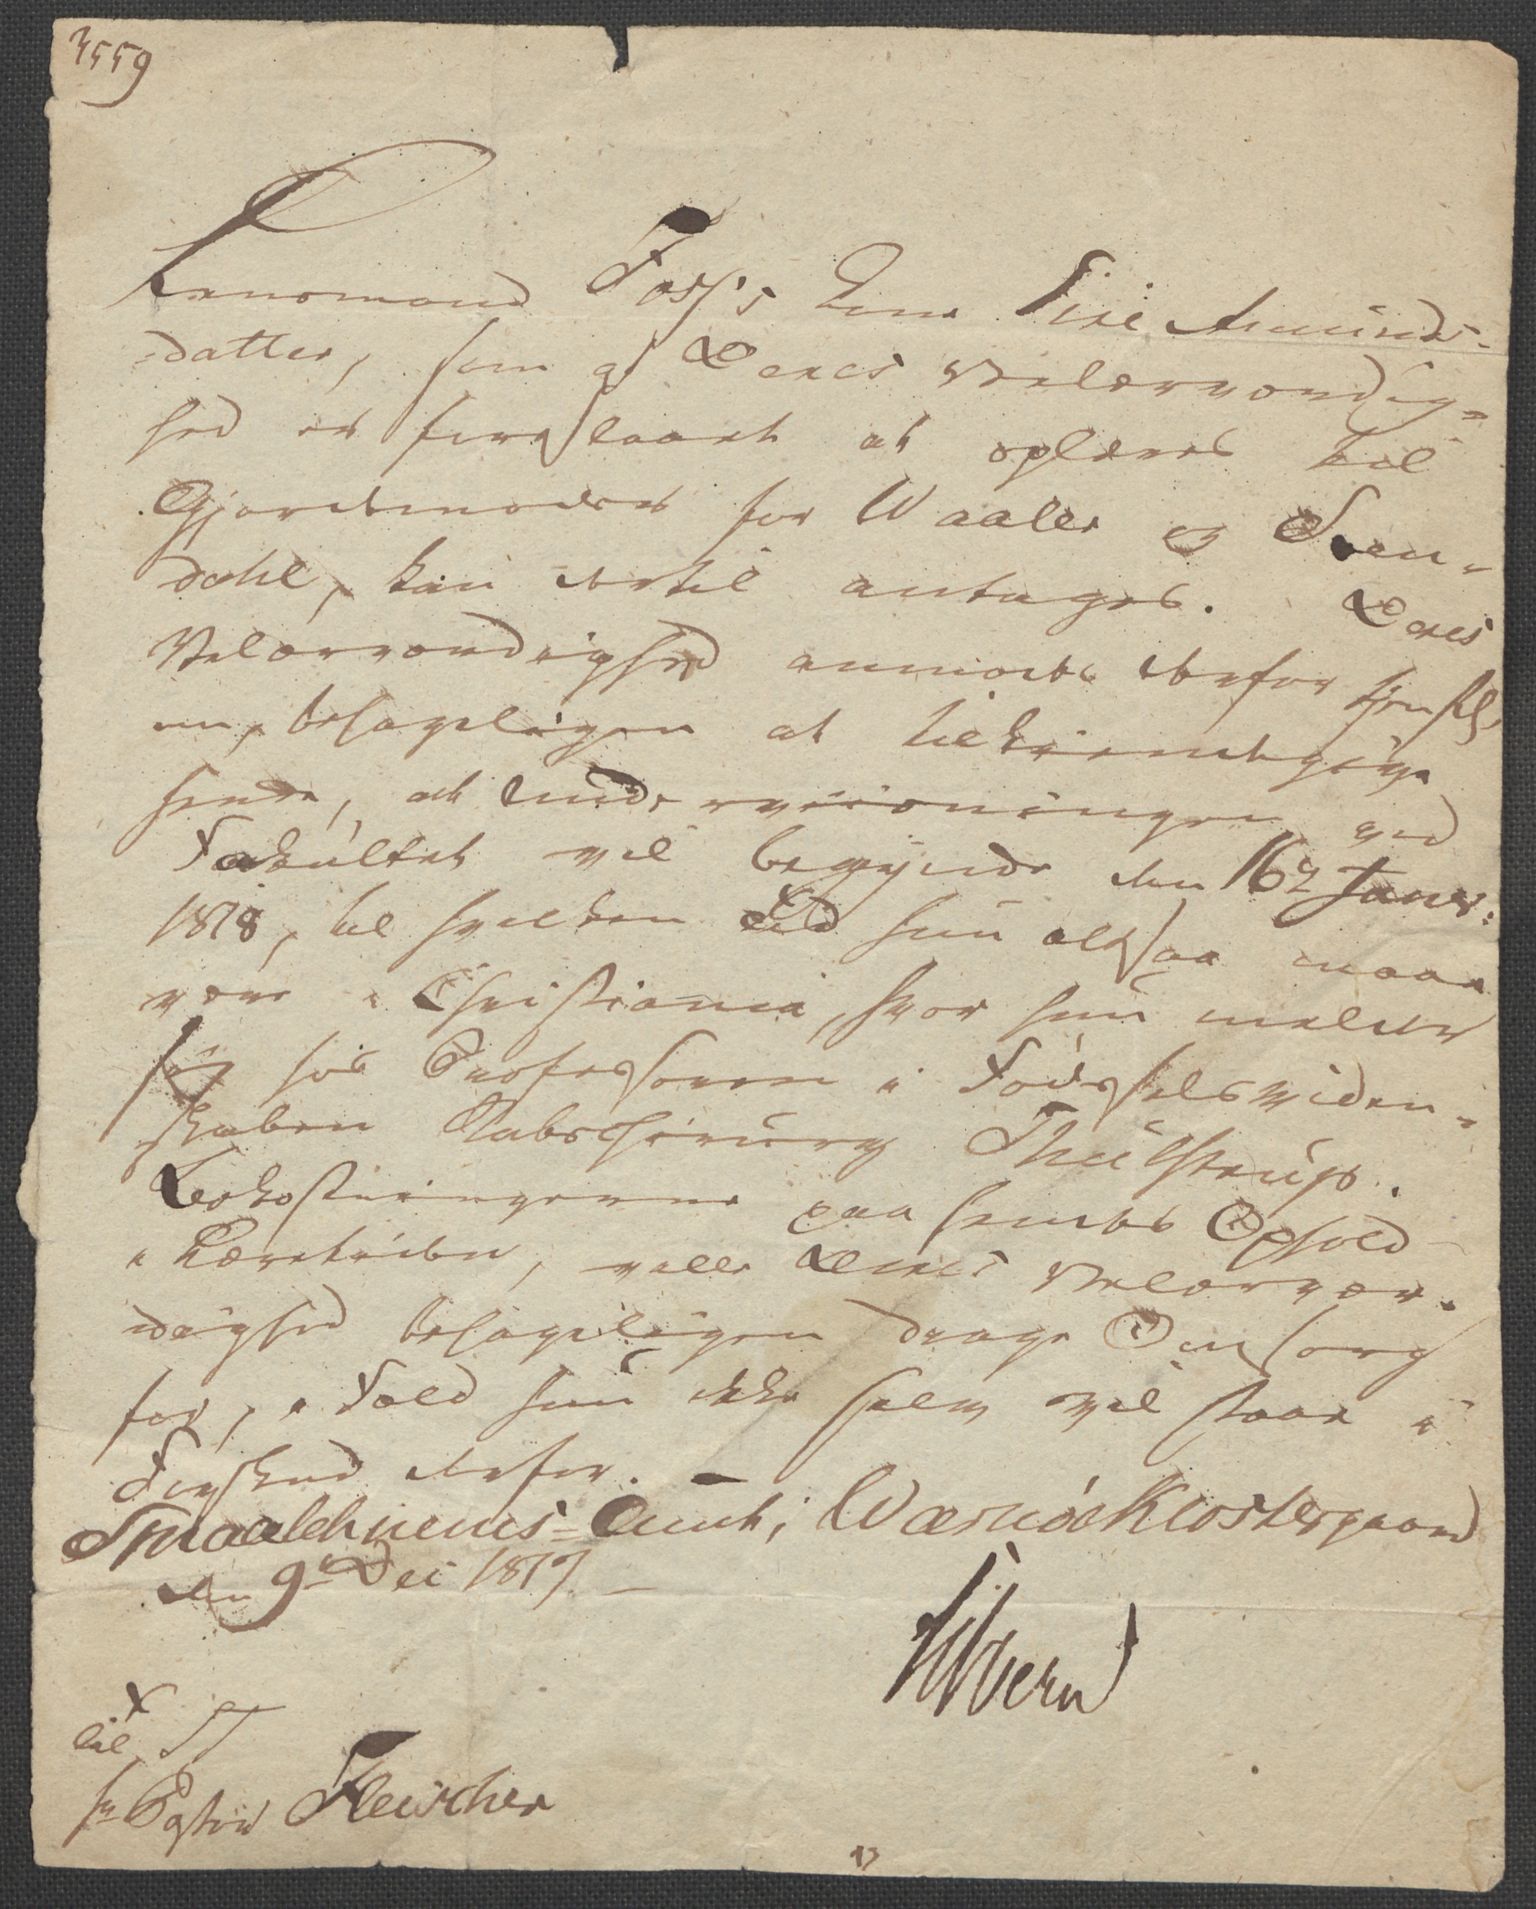 4559
Lensmand Foss's Kone Siri Amunds-
datter, som af Deres Velærværdig-
hed er foreslaaet at oplæres til
Gjordemoder for Waaler og Svin-
dahl, kan dertil antages. Deres
Velærværdighed anmodes derfor
om, behageligen at tilkiendegive
hende, at Underviisningen ved
Fakultet vil begynde den 16de Januar:
1818, til hvilken Tid hun altsaa maae
være i Christiania, hvor hun melder
sig hos Professoren i Fødselsviden-
skaben Stabschirurg Thulstrup.
Bekostningerne paa hendes Ophold
i Læretiden, ville Deres Velærvær-
dighed behageligen drage Omsorg
for, i Fald hun ikke selv vil staae i
Forskud derfor.
Smaalehnenes-Amt, Wærnøe Klostergaard
den 9de Dec 1817
Sibbern
Til
Hr Pastor Fleischer